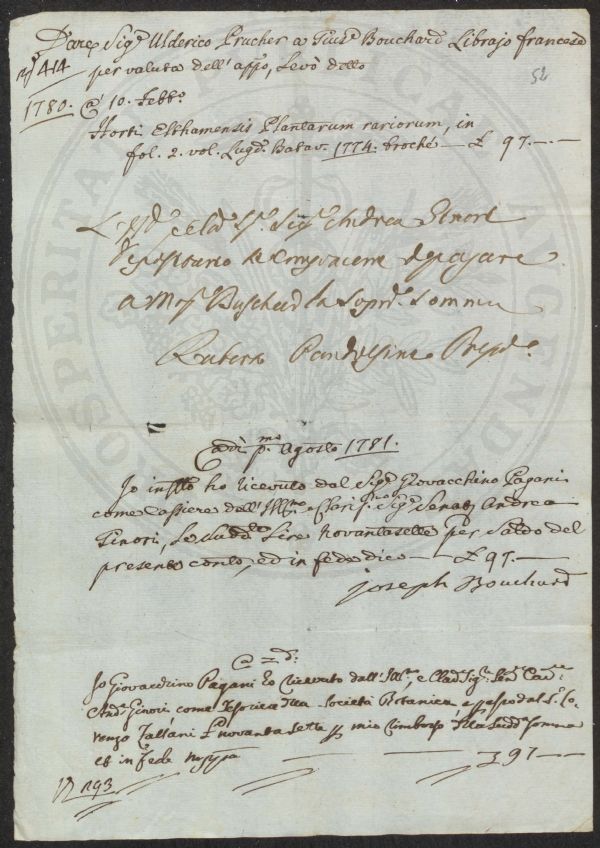 Dare Sigr Ulderico Prucher a Giuse Bouchard Librajo francese
No 414 per valuta dell' appo, Levò dallo
52
1780. a' 10. Febbo
Horti Elthamensis Plantarum rariorum, in
fol. 2. vol. Lugd. Batav. 1774. broché — £ 97. — . —
Sigr Andrea Ginori
Depositario si compiacerà di pagare
a Monsr Buschard la Sopra. Somma
Ruberto Pandolfini Presid.e
Adì pmo Agosto 1781.
Io infrto ho ricevuto dal Sigr Giovacchino Pagani
come Cassiere dell' Illmo e Clarismo Sigr Senatr Andrea
Ginori, Le Sudde Lire Novantasette per Saldo del
presente conto, ed in fede dico — £ 97. —
Joseph Bouchard
a dì do
Io Giovacchino Pagani ho ricevuto dall' Illmo, e Clarmo Sigr Senre Cavre
Andra Ginori come Tesoriere della Società Botanica, e per esso dal Sr Lo-
renzo Tassani £ novanta Sette per mio rimborso della Sudda Somma
et in fede mppa — — — £ 97 —
No 293